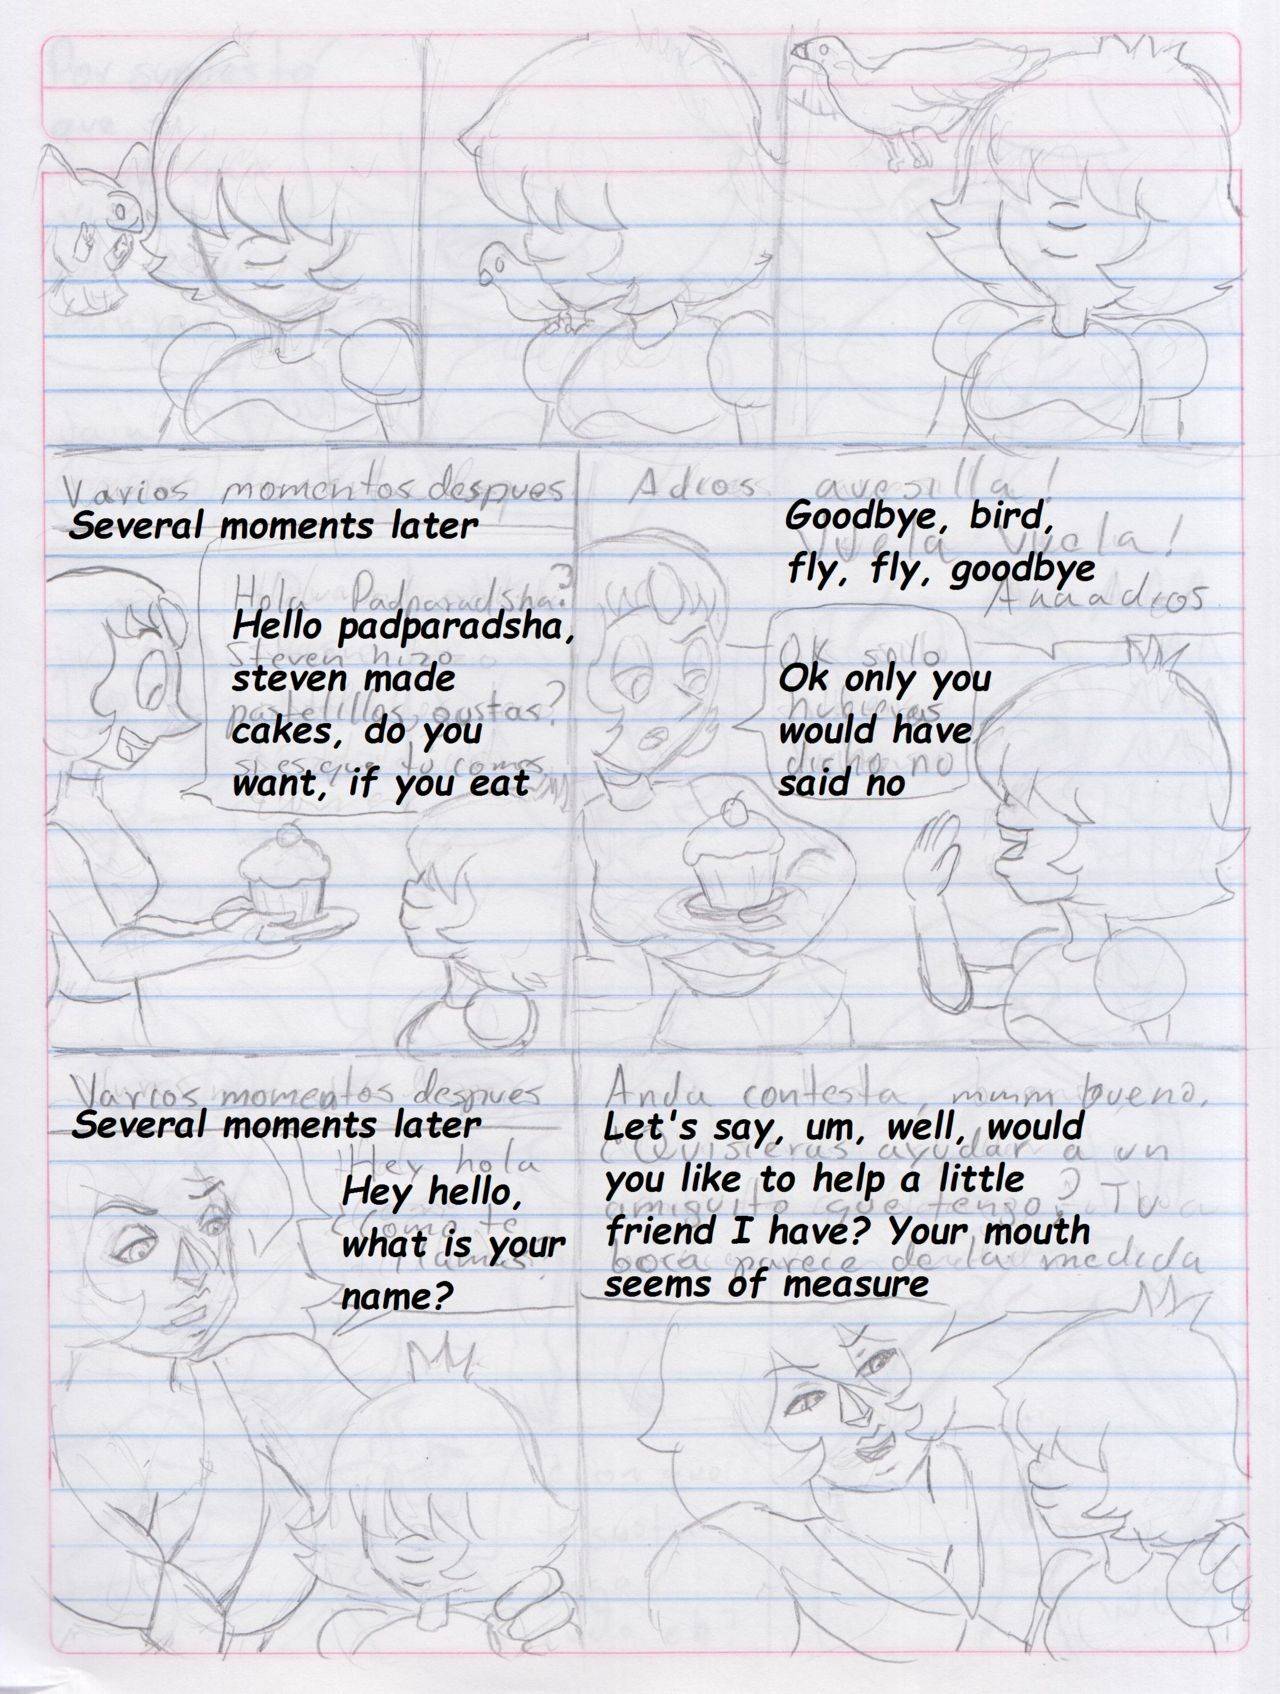 Varios momentos despues
Several moments later
Hola Padparadsha?
Hello padparadsha,
Steven hizo
steven made
pastelillos, gustas?
cakes, do you
si es que tu comes
want, if you eat
Adios avesilla!
Goodbye, bird,
Vuela vuela!
fly, fly, goodbye
Aaaadios
OK solo
Ok only you
hubieras
would have
dicho no
said no
Varios momentos despues
Several moments later
Hey hola
Hey hello,
Como te
what is your
llamas?
name?
Anda contesta, mmm bueno,
Let's say, um, well, would
quisieras ayudar a un
you like to help a little
amiguito que tengo? Tu
friend I have? Your mouth
boca parece de la medida
seems of measure